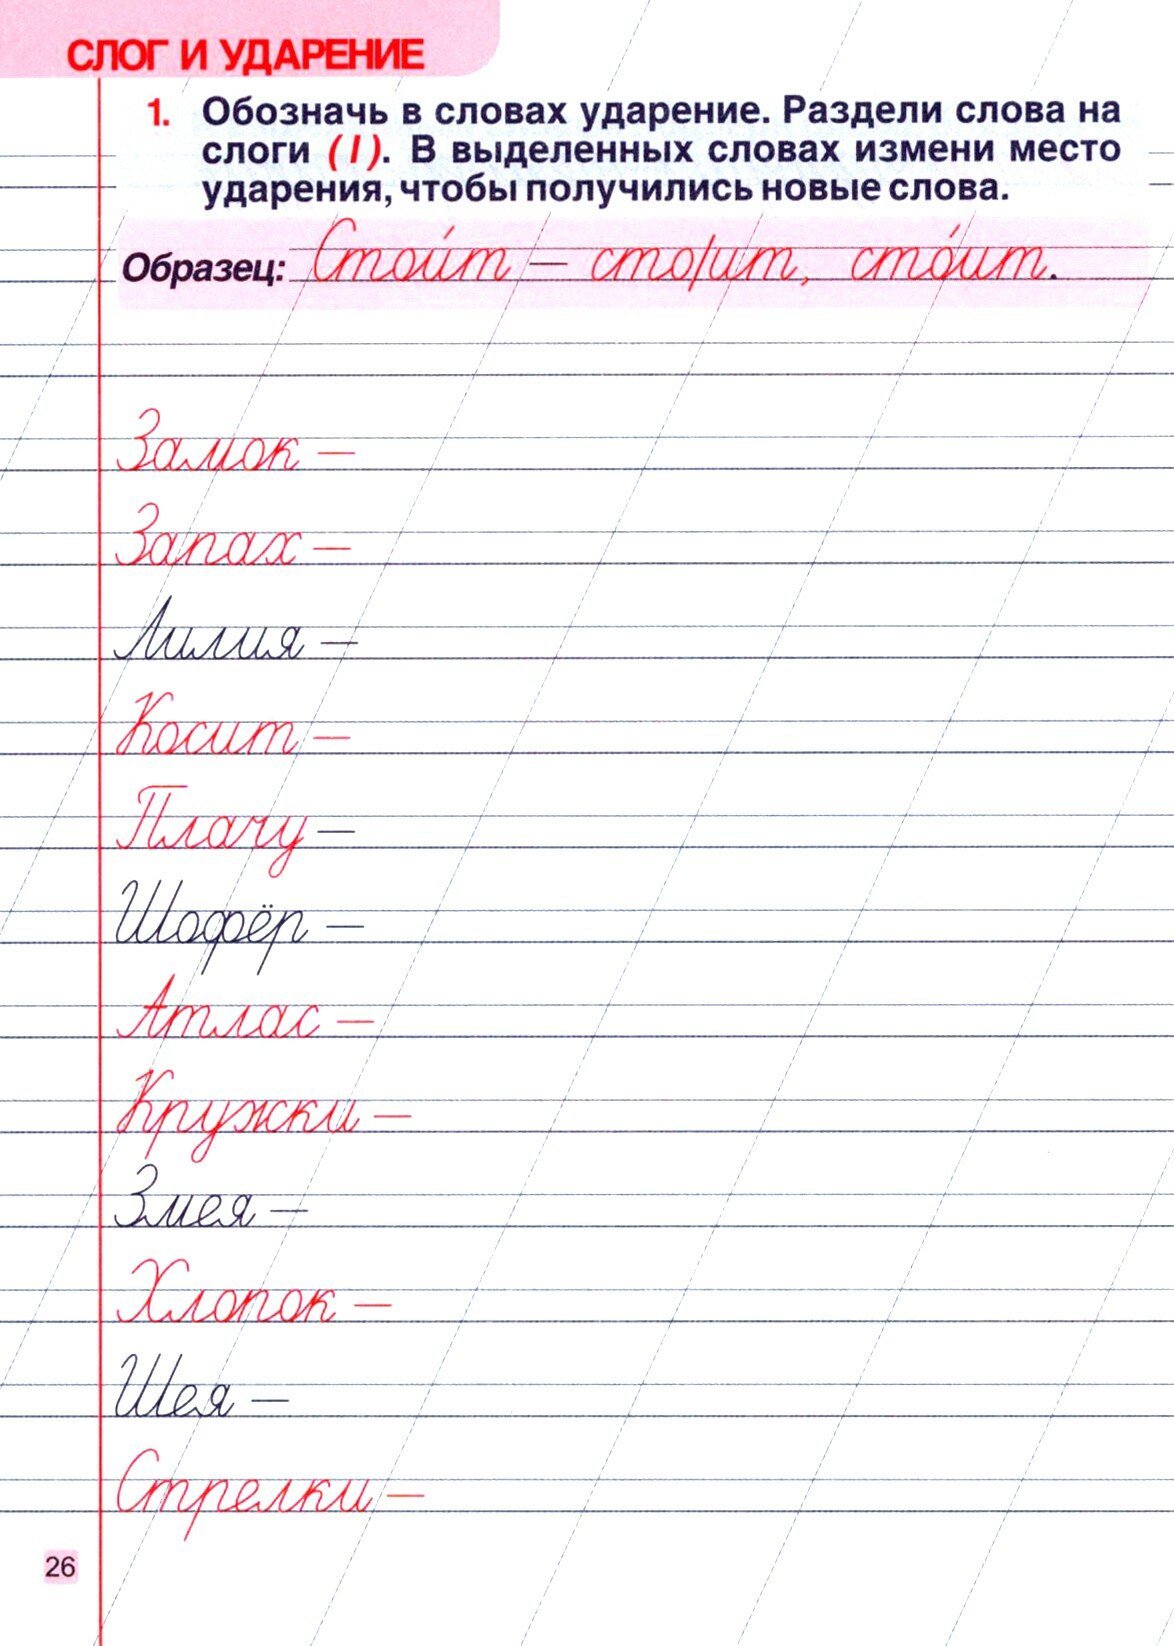 СЛОГ И УДАРЕНИЕ
1. Обозначь в словах ударение. Раздели слова на
слоги (/). В выделенных словах измени место
ударения, чтобы получились новые слова.
Образец: Стои́т – сто/ит, сто́ит.
Замок –
Запах –
Лилия –
Косит –
Плачу –
Шофёр –
Атлас –
Кружки –
Змея –
Хлопок –
Шея –
Стрелки –
26